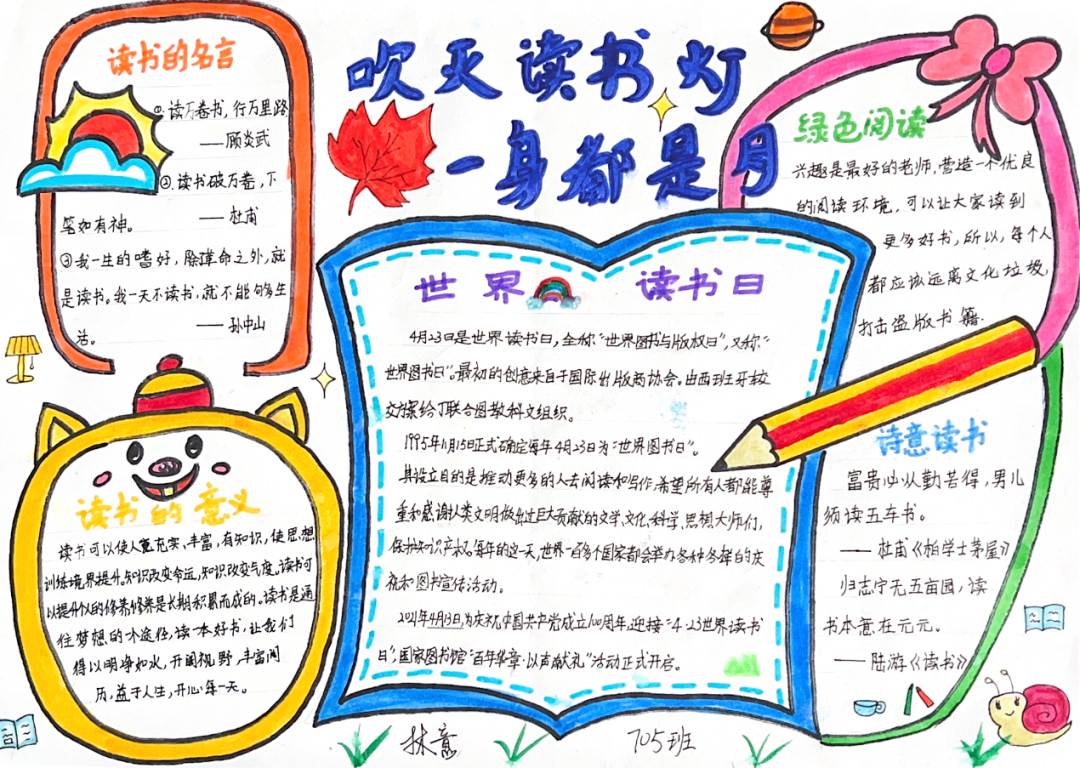 吹灭读书灯
一身都是月
读书的名言
①.读万卷书，行万里路
——顾炎武
②.读书破万卷，下
笔如有神。
——杜甫
③我一生的嗜好，除革命之外，就
是读书。我一天不读书，就不能够多生
活。
——孙中山
绿色阅读
兴趣是最好的老师，营造一个优良
的阅读环境，可以让大家读到
更多好书，所以，每个人
都应该远离文化垃圾，
打击盗版书籍.
世界读书日
4月23日是世界读书日，全称“世界图书与版权日”，又称“
世界图书日”。最初的创意来自于国际出版商协会。由西班牙
交给了联合国教科文组织。
1995年11月15日正式确定每年4月23日为“世界图书日”。
其设立目的是推动更多的人去阅读和写作，希望所有人都能尊
重和感谢人类文明做出过巨大贡献的文学、文化、科学、思想大师们，
保护知识产权。每年的这一天，世界一百多个国家都会举办各种各样的庆
祝和图书宣传活动。
2021年4月13日，为庆祝中国共产党成立100周年，迎接“4·23世界读书
日”，国家图书馆“百年华章·以声献礼”活动正式开启。
读书的意义
读书可以使人充实，丰富，有知识，使思想
训练境界提升。知识改变命运，知识改变气度。读书可
以提升的修养修养是长期积累而成的。读书是通
往梦想的一个途径，读一本好书，让我们
得以明净如水，开阔视野，丰富阅
历，益于人生，开心每一天。
诗意读书
富贵必从勤苦得，男儿
须读五车书。
——杜甫《柏学士茅屋》
归志宁无五亩园，读
书本意在元元。
——陆游《读书》
林意
705班